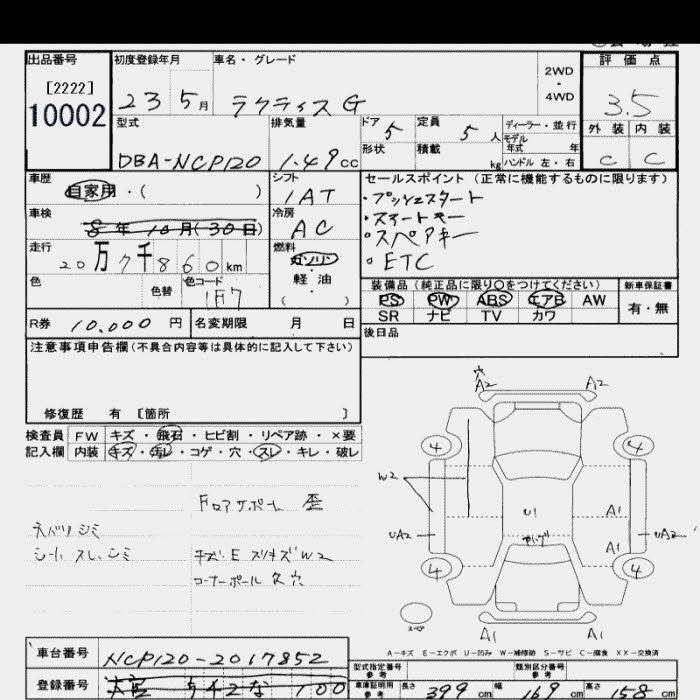 出品番号 初度登録年月 車名・グレード 2WD・4WD 評価点
[2222]
10002
23 5月 ラクティス G 3.5
型式 排気量 ドア 5 定員 5人 ディーラー・並行 外装 内装
形状 積載 kg モデル年式 年 ハンドル 左・右
DBA-NCP120 1.49cc C C
車歴 シフト セールスポイント(正常に機能するものに限ります)
自家用・( ) 1AT ・プッシュスタート
車検 冷房 ・スマートキー
8年10月(30日) AC ・スペアキー
走行 燃料 ・ETC
20万7千860km ガソリン・軽油( )
色 色替 色コード 1F7
装備品(純正品に限り○をつけてください) 新車保証書
PS PW ABS エアB AW 有・無
SR ナビ TV カワ
R券 10,000円 名変期限 月 日 後日品
注意事項申告欄(不具合内容等は具体的に記入して下さい)
修復歴 有 [箇所 ]
検査員 FW キズ・飛石・ヒビ割・リペア跡・×要
記入欄 内装 キズ・汚レ・コゲ・穴・スレ・キレ・破レ
フロアサポート 歪
ネバリ シミ
シート スレ、シミ
キズ・E スリキズ W2
コーナーポール 欠 穴
穴
A2 A2
4 4
W2
U1 A1
UA2 A1 UA2
4 4
スペア
A1 A1
A-キズ E-エクボ U-凹み W-補修跡 S-サビ C-腐食 XX-交換済
車台番号 NCP120-2017852
型式指定番号 参考 類別区分番号 参考
登録番号 100
車庫証明用 参考 長さ 399 幅 169 高さ 158